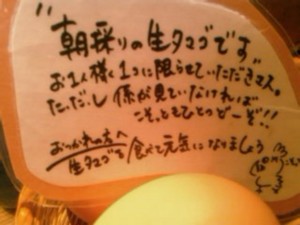 "朝採りの生タマゴです"
お1人様1コに限らせていただきマス。
ただし係が見ていなければ
こそっともひとつどーぞ!!
おつかれの方へ
生タマゴを食べて元気になりましょう